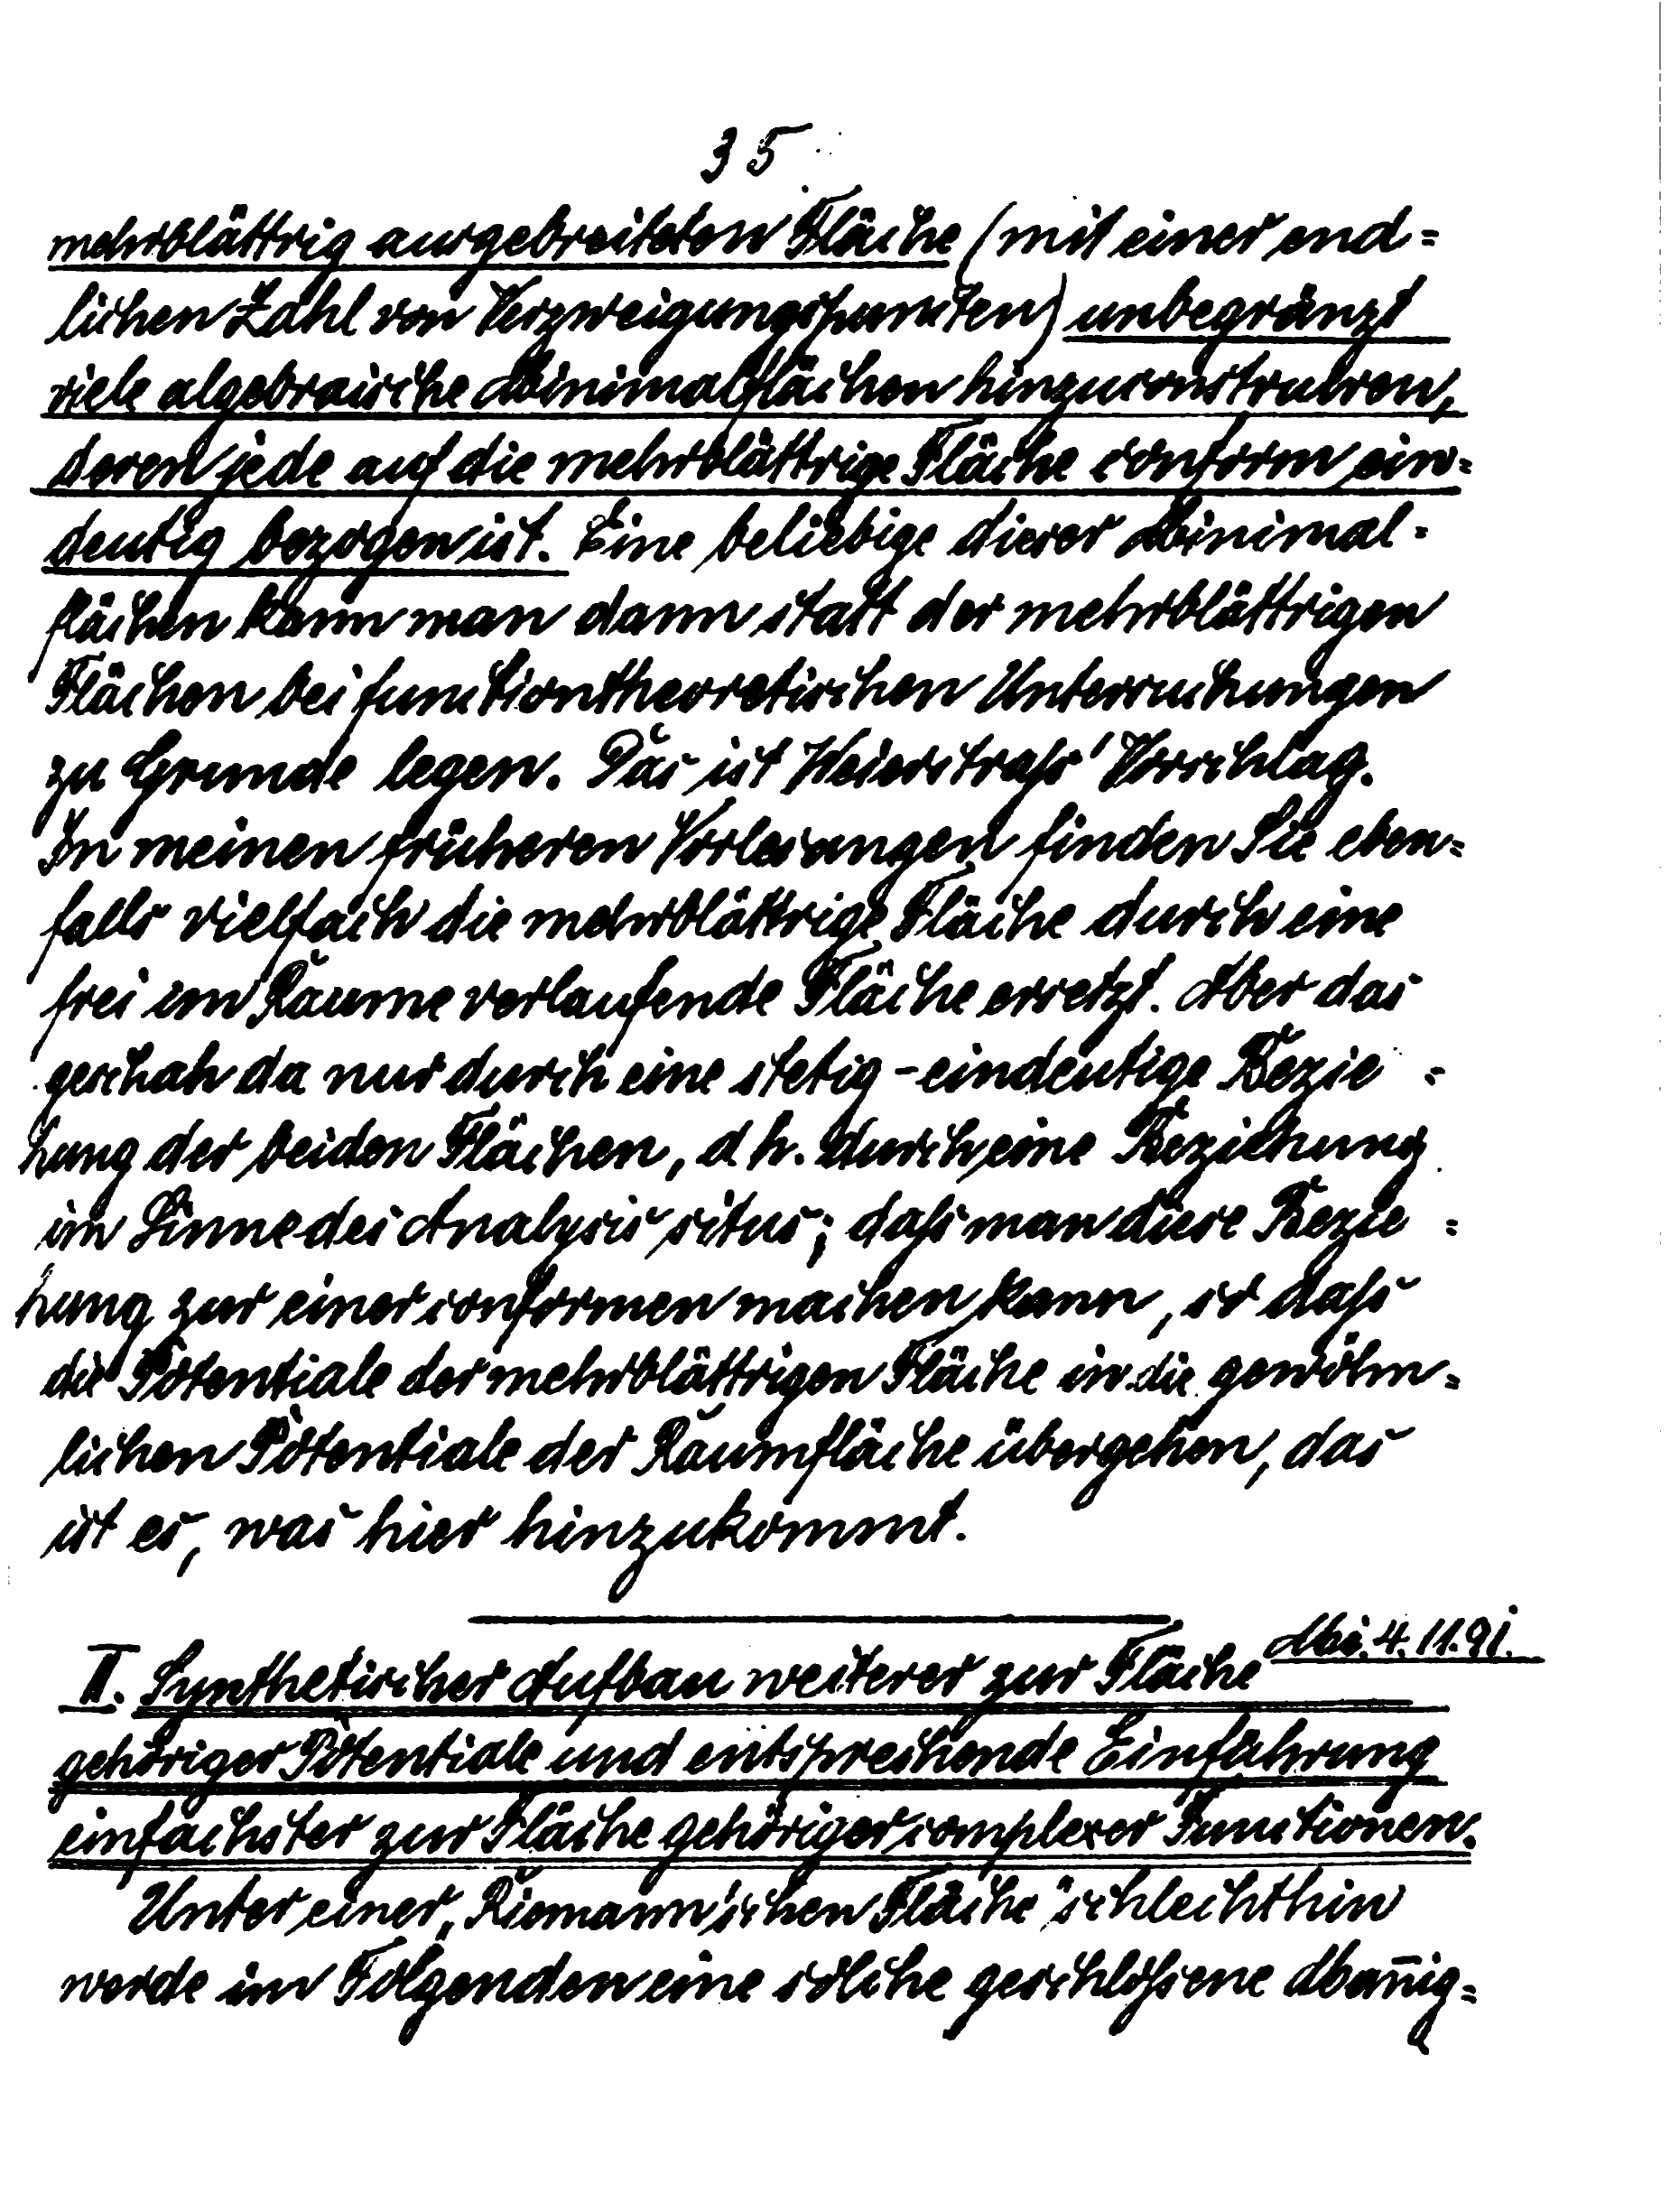 35
mehrblättrig ausgebreiteten Fläche (mit einer end=
lichen Zahl von Verzweigungspunkten) unbegränzt
viele algebraische Minimalflächen hinzuconstruiren,
deren jede auf die mehrblättrige Fläche conform ein=
deutig bezogen ist. Eine beliebige dieser Minimal=
flächen kann man dann statt der mehrblättrigen
Flächen bei functiontheoretischen Untersuchungen
zu Grunde legen. Das ist Weierstraß' Vorschlag.
In meinen früheren Vorlesungen finden Sie eben=
falls vielfach die mehrblättrige Fläche durch eine
frei im Raume verlaufende Fläche ersetzt. Aber das
geschah da nur durch eine stetig-eindeutige Bezie=
hung der beiden Flächen, d h. durch eine Beziehung
im Sinne des Analysis situs; daß man diese Bezie=
hung zur einer conformen machen kann, so daß
die Potentiale der mehrblättrigen Fläche in die gewöhn=
lichen Potentiale der Raumfläche übergehen, das
ist es, was hier hinzukommt.
Mi. 4. 11. 91.
II. Synthetischer Aufbau weiterer zur Fläche
gehöriger Potentiale und entsprechende Einführung
einfachster zur Fläche gehöriger complexer Functionen.
Unter einer „Riemann'schen Fläche" schlechthin
werde im Folgenden eine solche geschloßene Man̄ig=